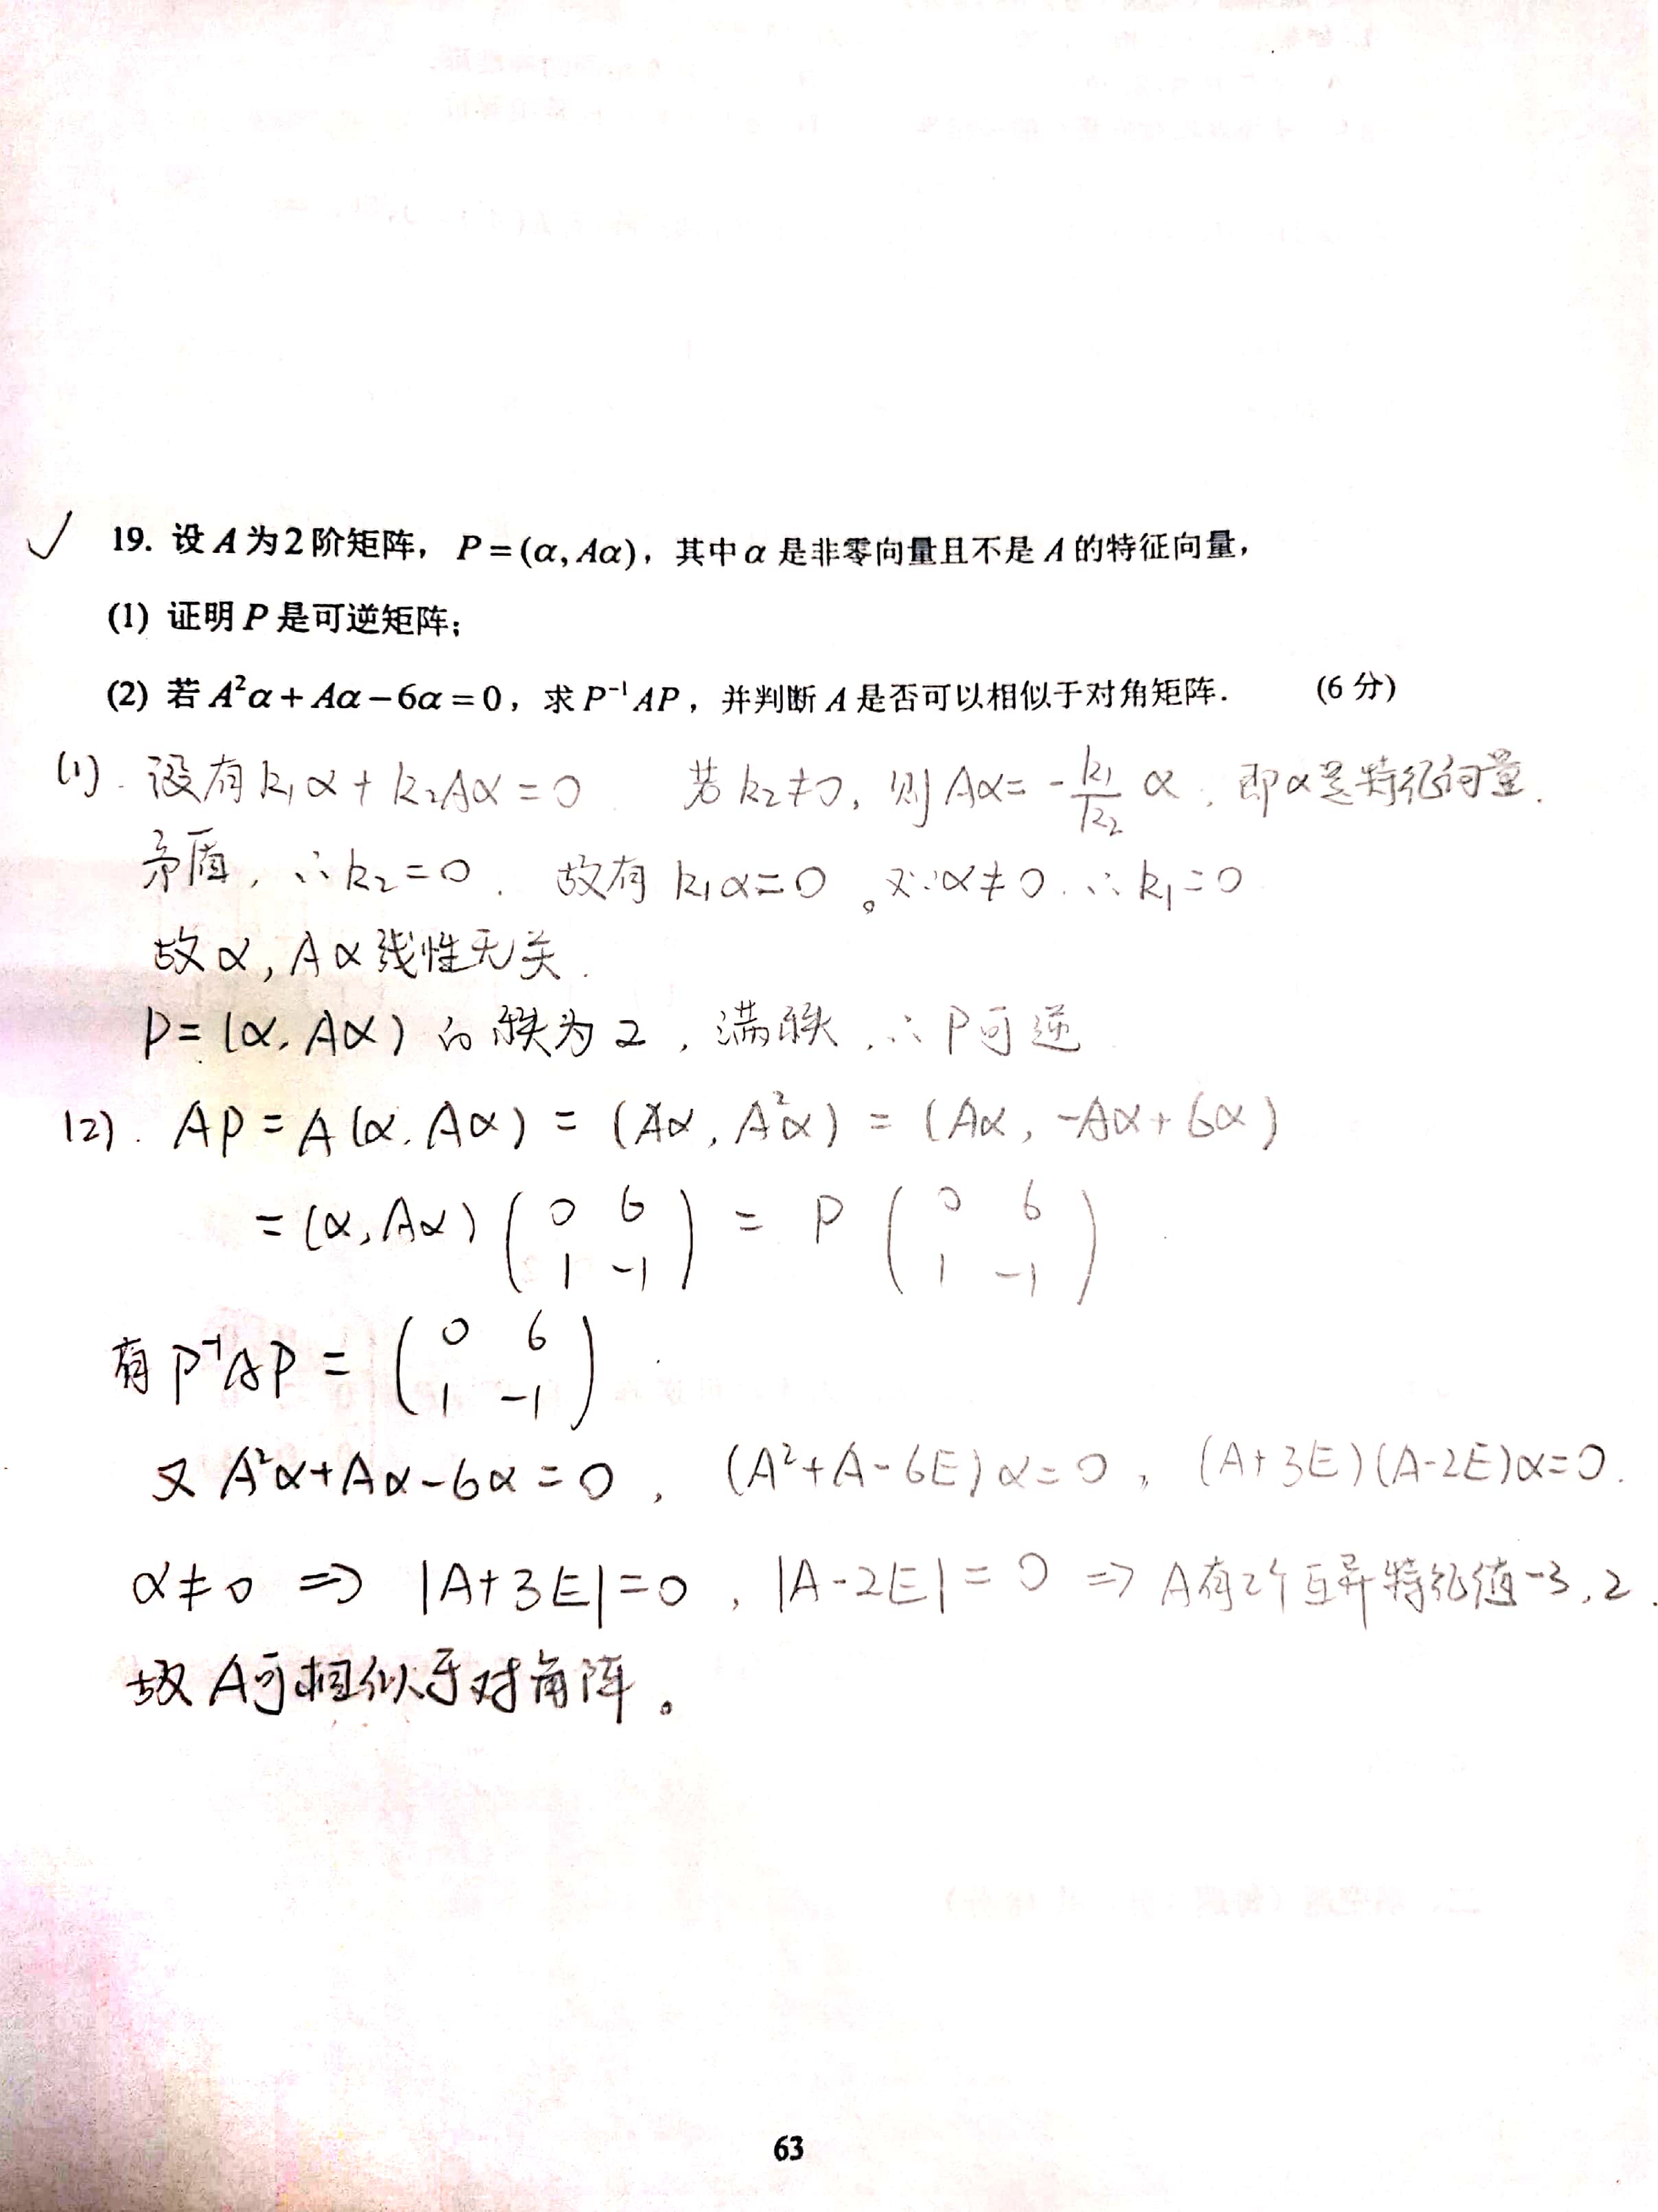 19. 设 A 为 2 阶矩阵，P = (α, Aα)，其中 α 是非零向量且不是 A 的特征向量，
(1) 证明 P 是可逆矩阵；
(2) 若 A²α + Aα − 6α = 0，求 P⁻¹AP，并判断 A 是否可以相似于对角矩阵. (6 分)
(1). 设有 k₁α + k₂Aα = 0 若 k₂≠0, 则 Aα = -k₁/k₂ α, 即α是特征向量.
矛盾, ∴ k₂=0. 故有 k₁α=0。又∵α≠0 ∴ k₁=0
故 α, Aα 线性无关.
P=(α, Aα) 的秩为2, 满秩, ∴ P可逆
(2). AP = A(α, Aα) = (Aα, A²α) = (Aα, -Aα+6α)
= (α, Aα) ( 0 6 ; 1 -1 ) = P ( 0 6 ; 1 -1 )
有 P⁻¹AP = ( 0 6 ; 1 -1 )
又 A²α+Aα-6α=0, (A²+A-6E)α=0, (A+3E)(A-2E)α=0.
α≠0 ⇒ |A+3E|=0, |A-2E|=0 ⇒ A有2个互异特征值-3, 2.
故 A可相似于对角阵。
63